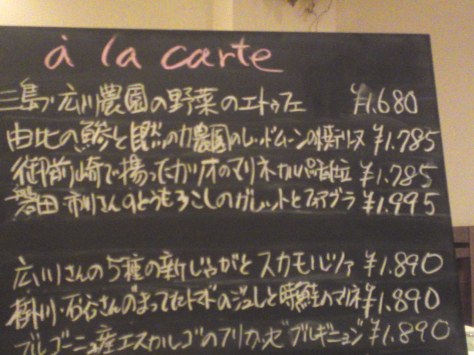 à la carte
三島・広川農園の野菜のエトゥフェ ¥1.680
由比の鯵と自然の力農園の ¥1.785
御前崎で揚ったカツオのマリネ ¥1.785
磐田 市川さんのとうもろこしのガレットとフォアグラ ¥1.995
広川さんの5種の新じゃがとスカモルツァ ¥1.890
掛川・石谷さんの トマトのジュレと時鮭のマリネ ¥1.890
ブルゴーニュ産エスカルゴのフリカッセ ブルギニョン ¥1.890